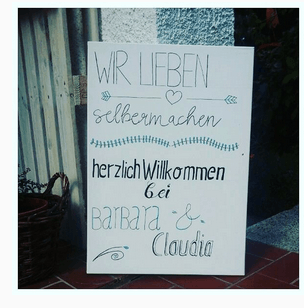 WIR LIEBEN
selbermachen
herzlich Willkommen
bei
BARBARA &
Claudia